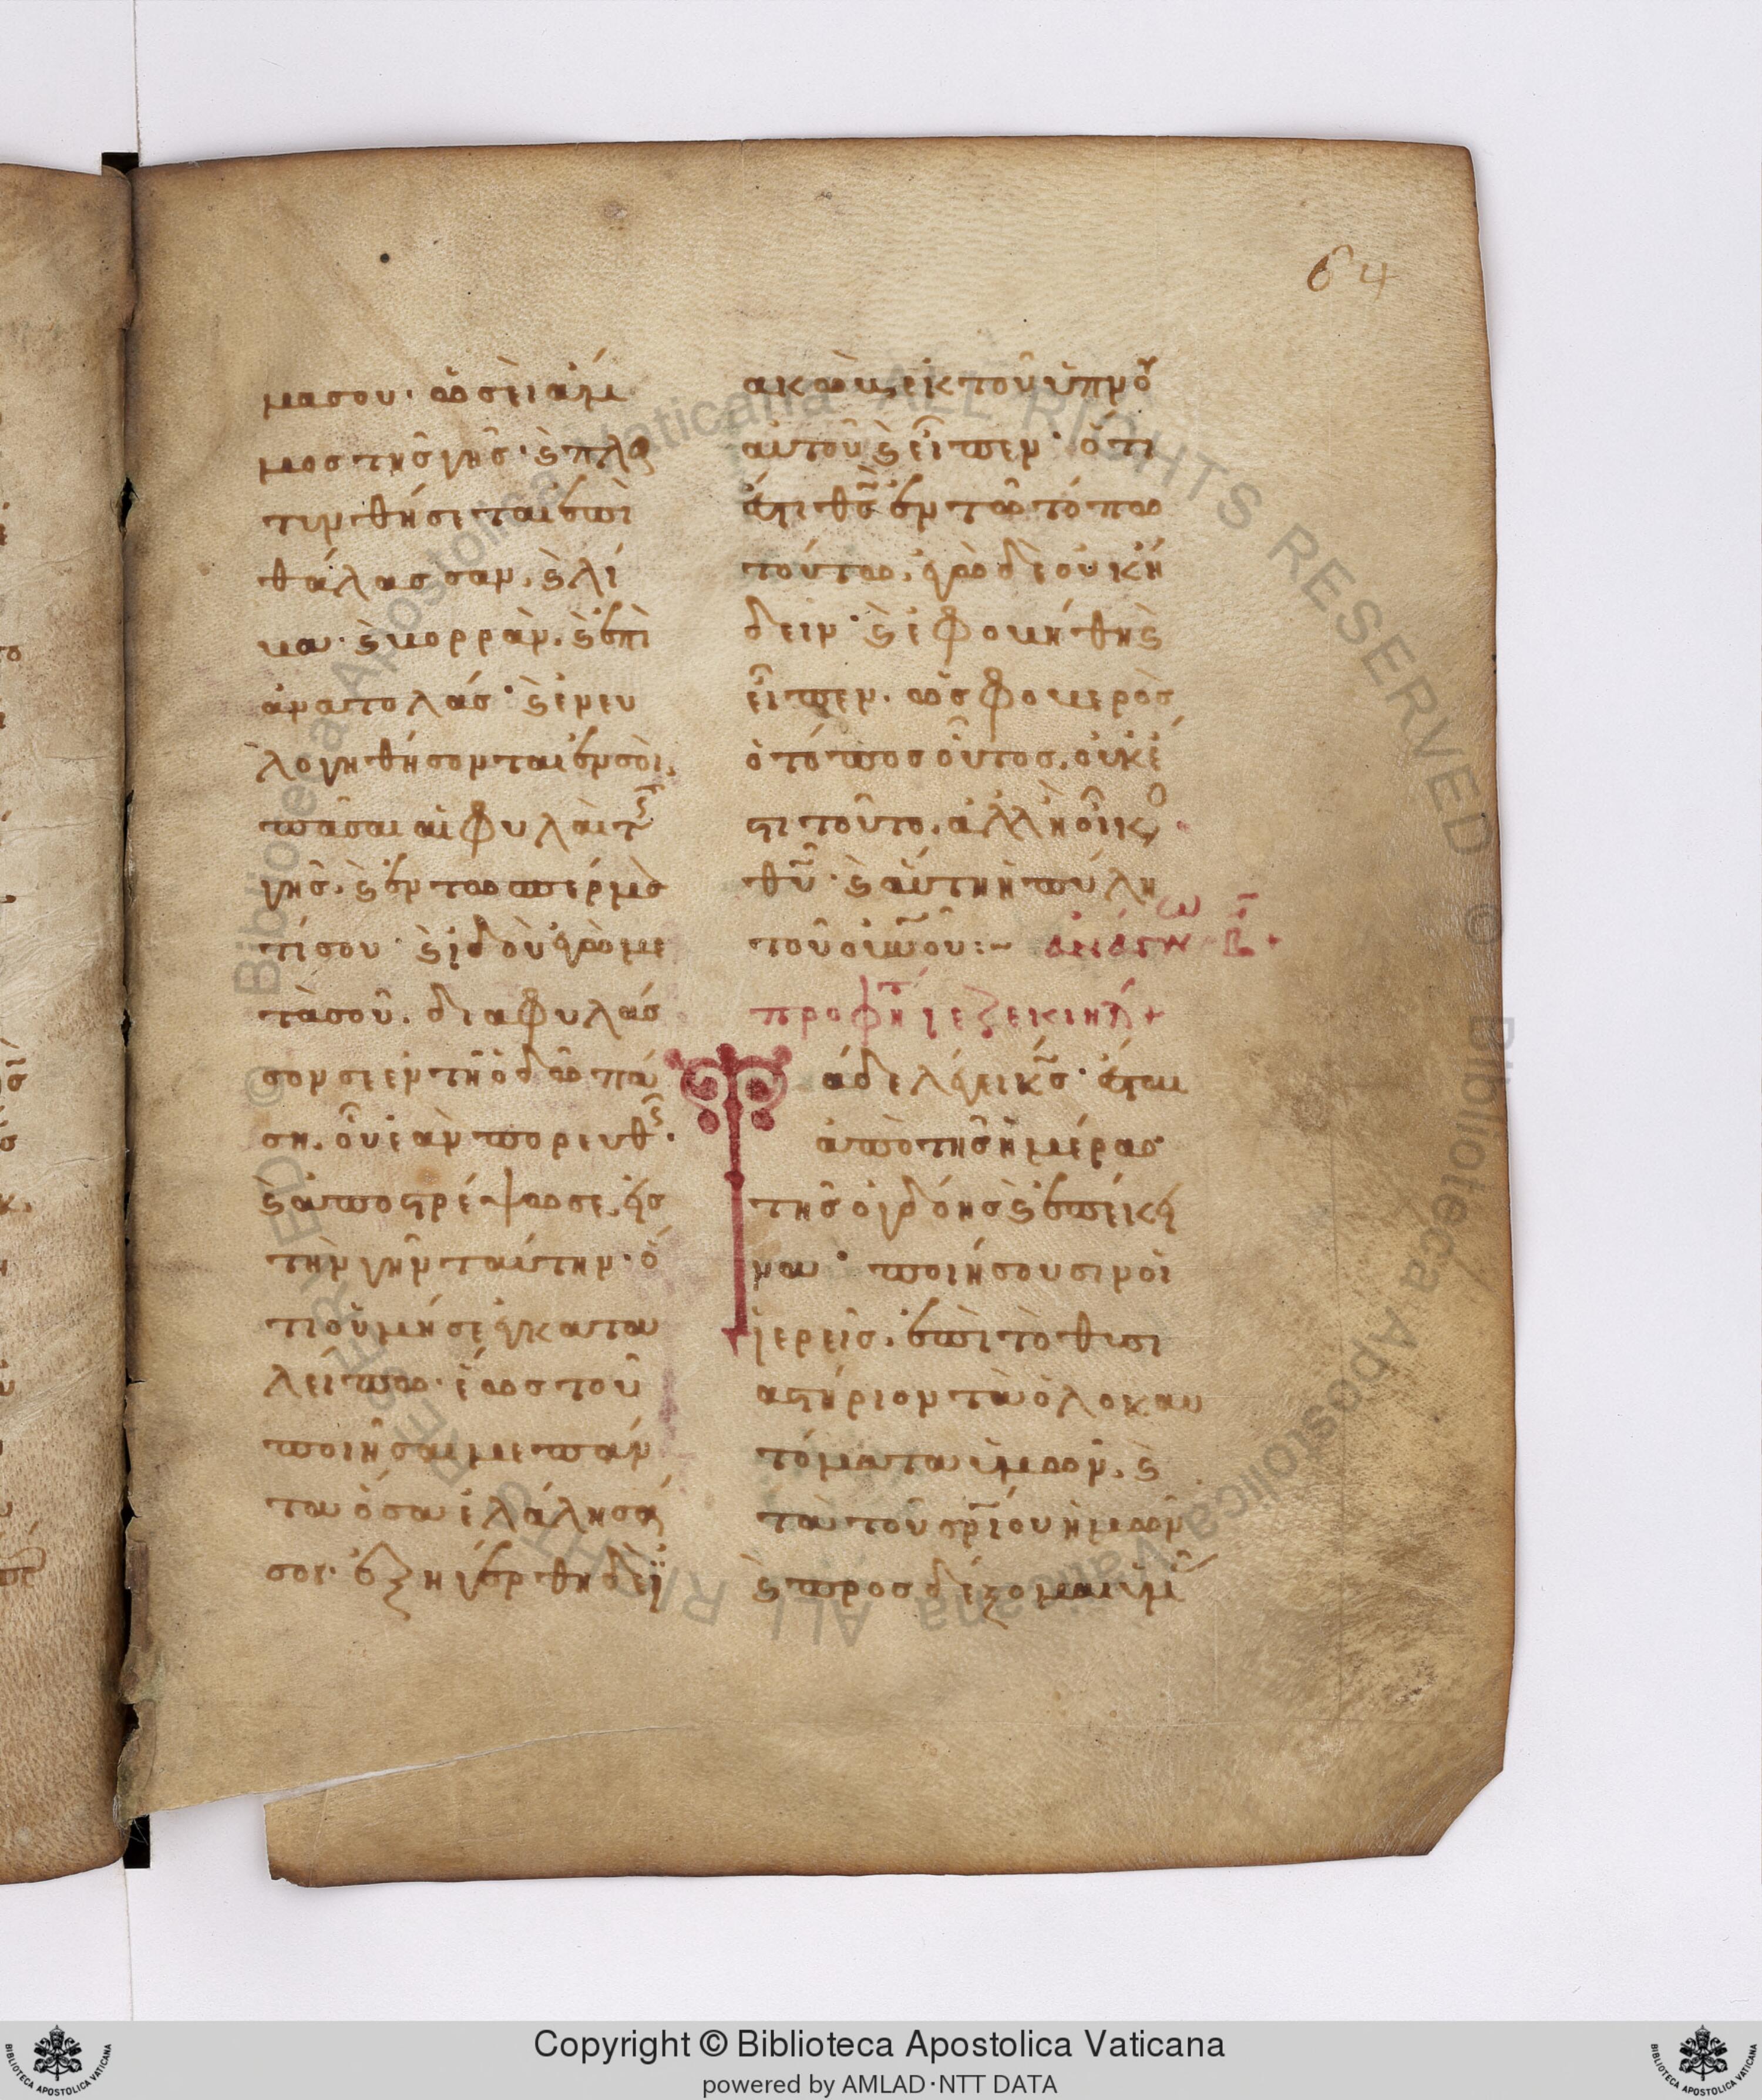 64
μασου· ὡσὲι ἅμ
μος τῆς γῆς· ϗ πλα
τυνθήσεται ἐπὶ
θάλασσαν, ϗ λί
βα· ϗ βορρὰν, ϗ ἐπὶ
ἀνατολάς· ϗ ἐνευ
λογηθήσονται ἐν σοὶ,
πᾶσαι αἱ φυλαὶ τῆς
γῆς, ϗ ἐν τῶ σπέρμα
τί σου· ϗ ἰδοὺ ἐγὼ με
τὰ σοῦ, διαφυλάσ
σον σε ἐν τῆ ὁδῶ πά
ση, οὗ ἐὰν πορευθῆς·
ϗ ἀποστρέψω σε, εἰς
τὴν γῆν ταύτην· ὅ
τι οὐ μή σε ἐγκατα
λείπω· ἕως τοῦ
ποιῆσαι με πάν
τα ὅσα ἐλάλησά
σοι· ἐξηγέρθη δὲ ϊ
ακὼβ, ἐκ τοῦ ὕπνου
αὐτοῦ ϗ εἶπεν· ὅτι
ἔστι κς ἐν τῶ τόπω
τούτω, ἐγὼ δὲ οὐκ ἤ
δειν· ϗ ἐφοβήθη ϗ
εἶπεν, ὡς φοβερὸς
ὁ τόπος οὗτος, οὐκ ἔ
στι τοῦτο, ἀλλ ἢ οἶκος
θυ· ϗ αὕτη ἡ πύλη
τοῦ οὐνοῦ:~ ἀνάγνω Β+
προφητ ιεζεκιηλ+
Τάδε λέγει κς· ἔσται
ἀπὸ τῆς ἡμέρας
τῆς ὀγδόης ϗ ἐπέκει
να· ποιήσουσιν οἱ
ἱερεῖς, ἐπὶ τὸ θυσι
αστήριον τὰ ὁλοκαυ
τόματα ὑμῶν, ϗ
τὰ τοῦ σρίου ἡμῶν
ϗ προσδέξομαι ὑμ
Copyright © Biblioteca Apostolica Vaticana
powered by AMLAD·NTT DATA